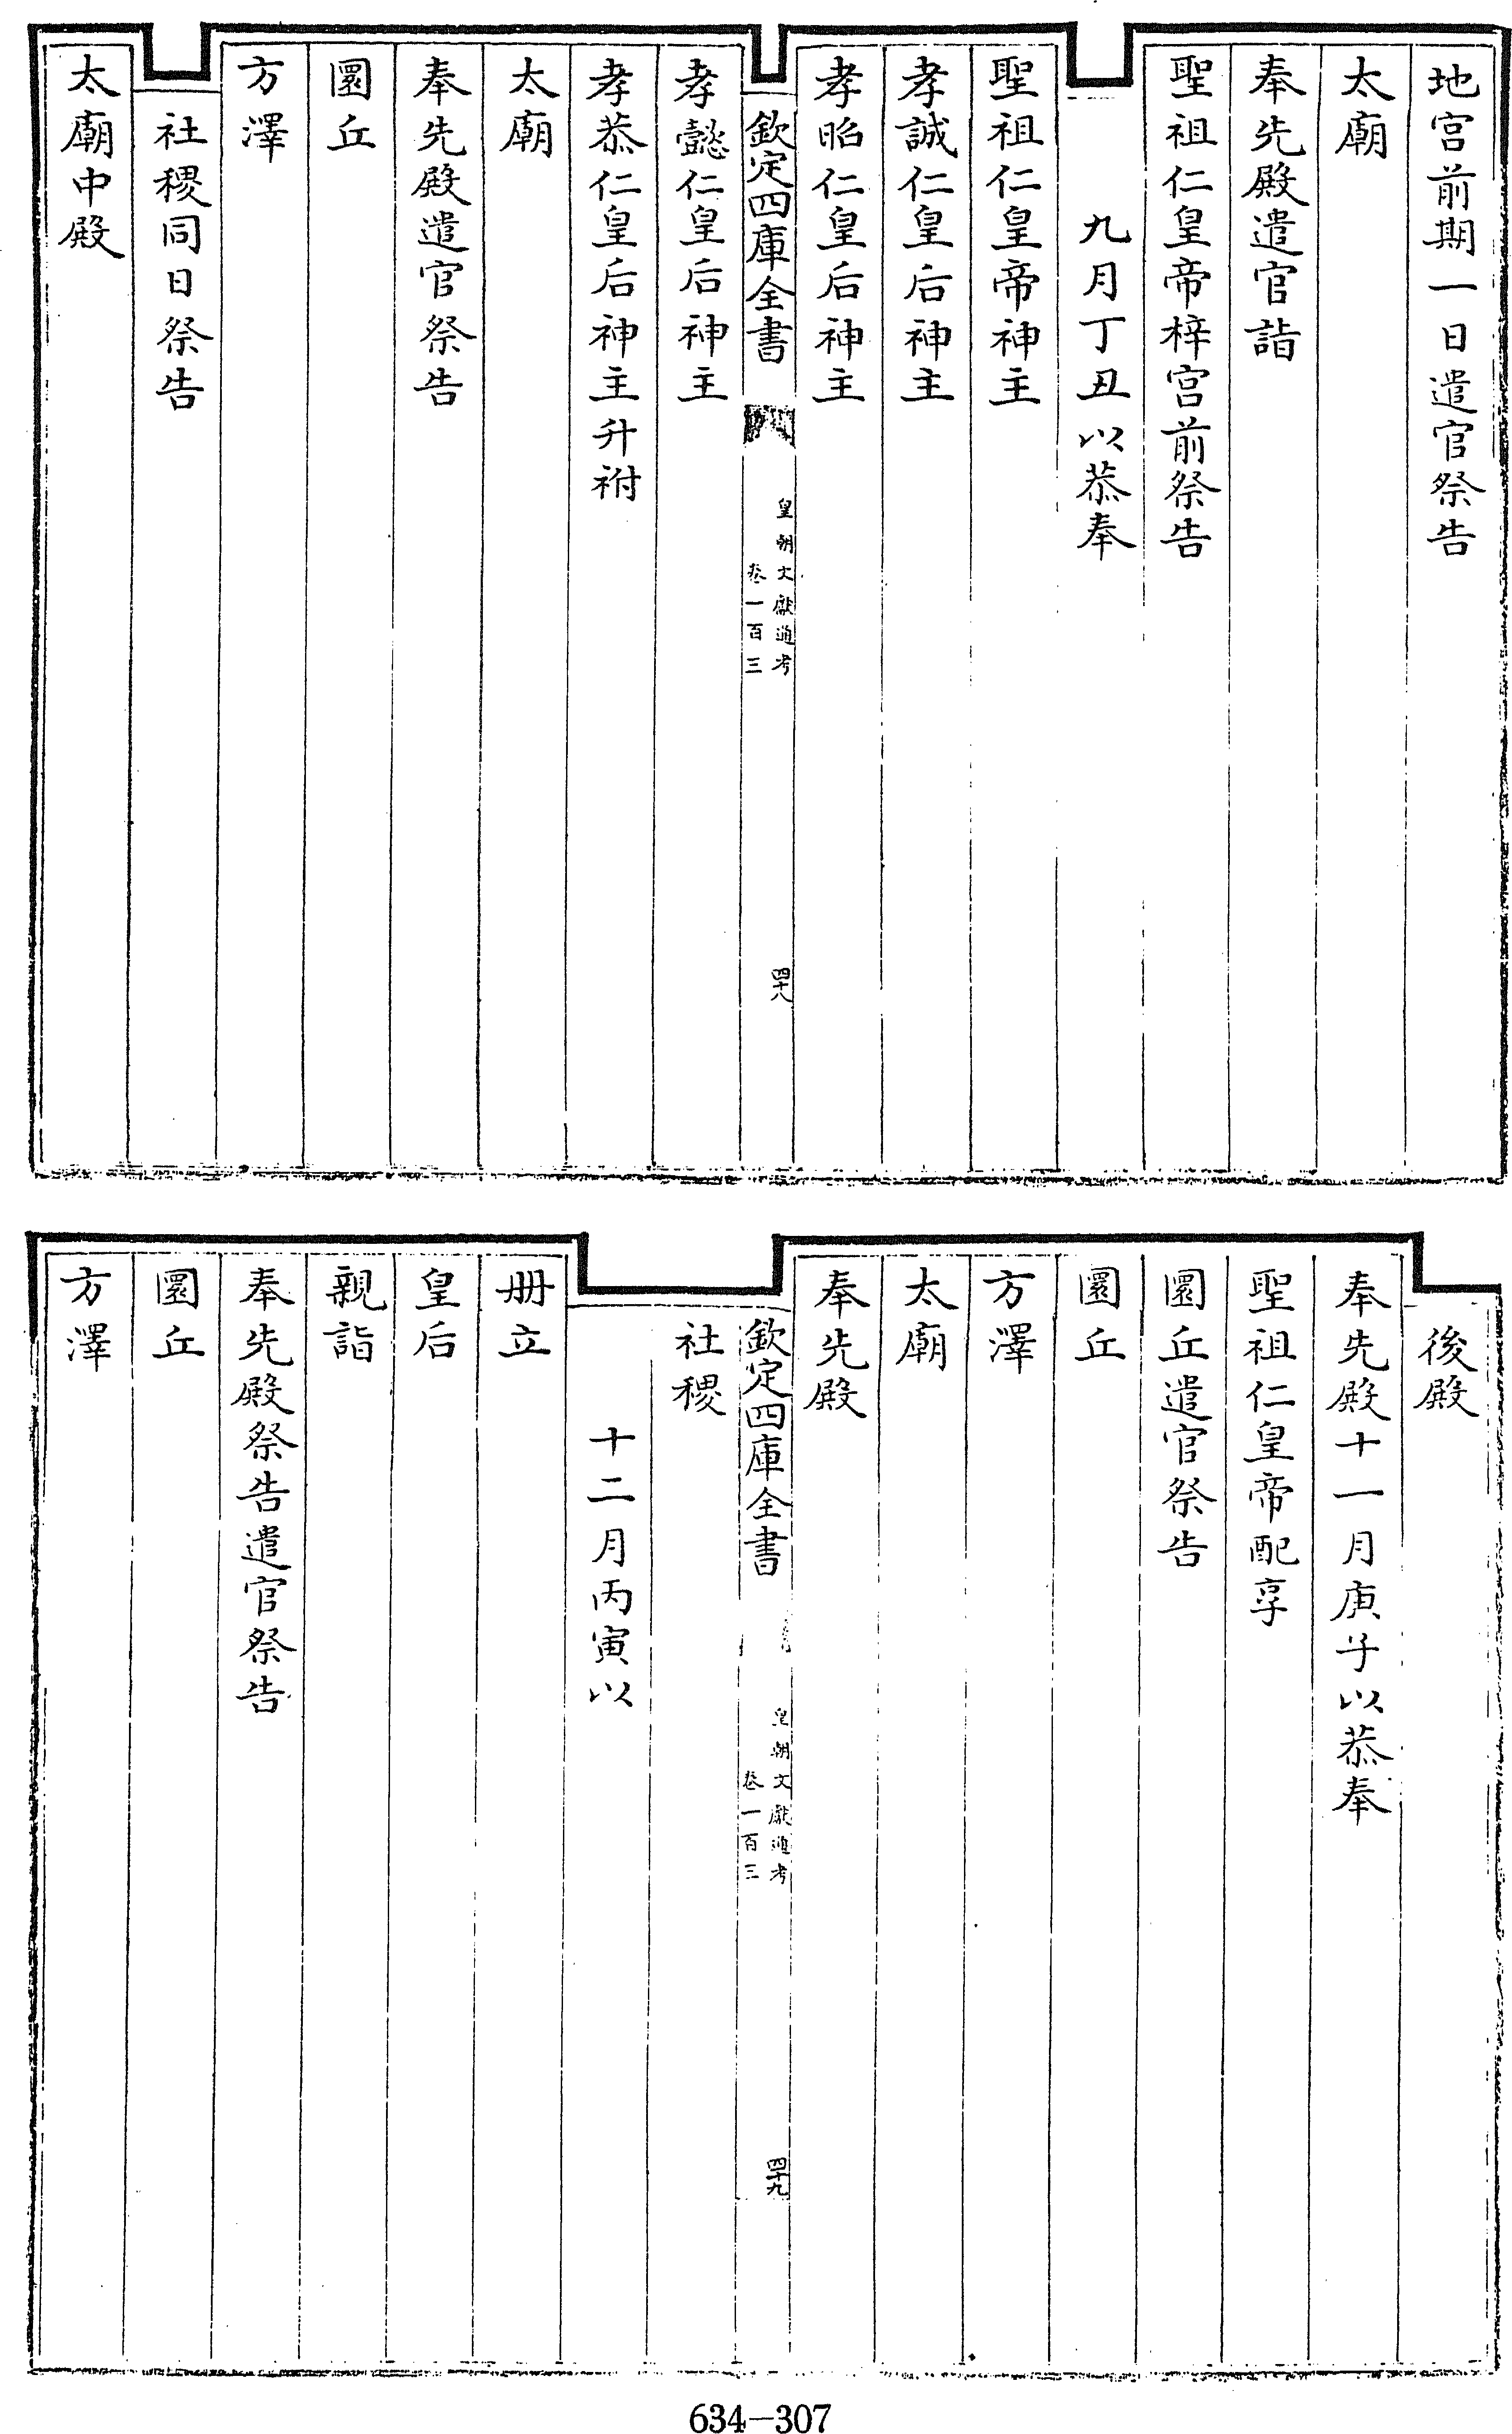 地宫前期一日遣官祭告
太廟
奉先殿遣官詣
聖祖仁皇帝梓宫前祭告
九月丁丑以恭奉
聖祖仁皇帝神主
孝誠仁皇后神主
孝昭仁皇后神主
欽定四庫全書
皇朝文獻通考
卷一百三
四十八
孝懿仁皇后神主
孝恭仁皇后神主升祔
太廟
奉先殿遣官祭告
圜丘
方澤
社稷同日祭告
太廟中殿
後殿
奉先殿十一月庚子以恭奉
聖祖仁皇帝配享
圜丘遣官祭告
圜丘
方澤
太廟
奉先殿
欽定四庫全書
皇朝文獻通考
卷一百三
四十九
社稷
十二月丙寅以
冊立
皇后
親詣
奉先殿祭告遣官祭告
圜丘
方澤
634-307